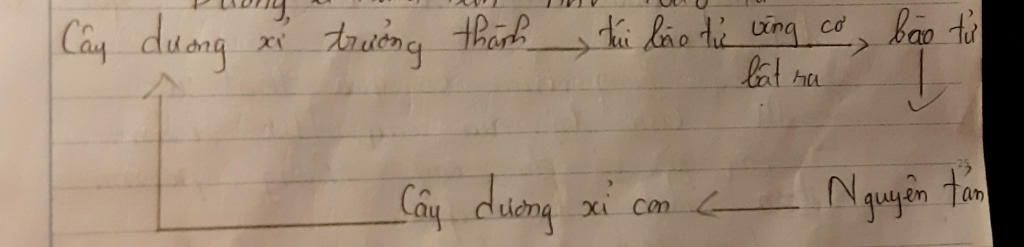 Cây dương xỉ trưởng thành → túi bào tử vòng cơ → bào tử
bật ra
Cây dương xỉ con ← Nguyên tản